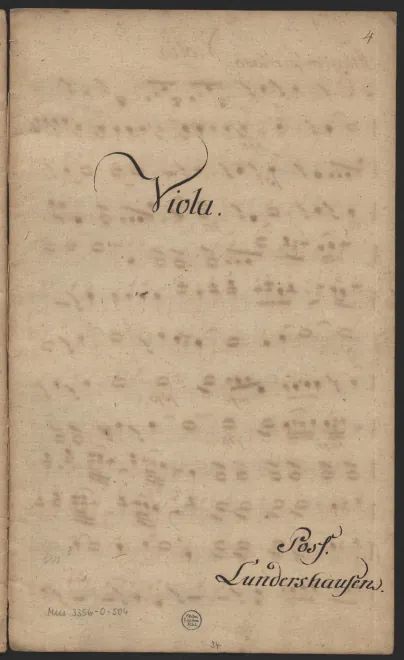 4
Viola.
Poss.
Lundershausen.
Mus. 3356-O-504